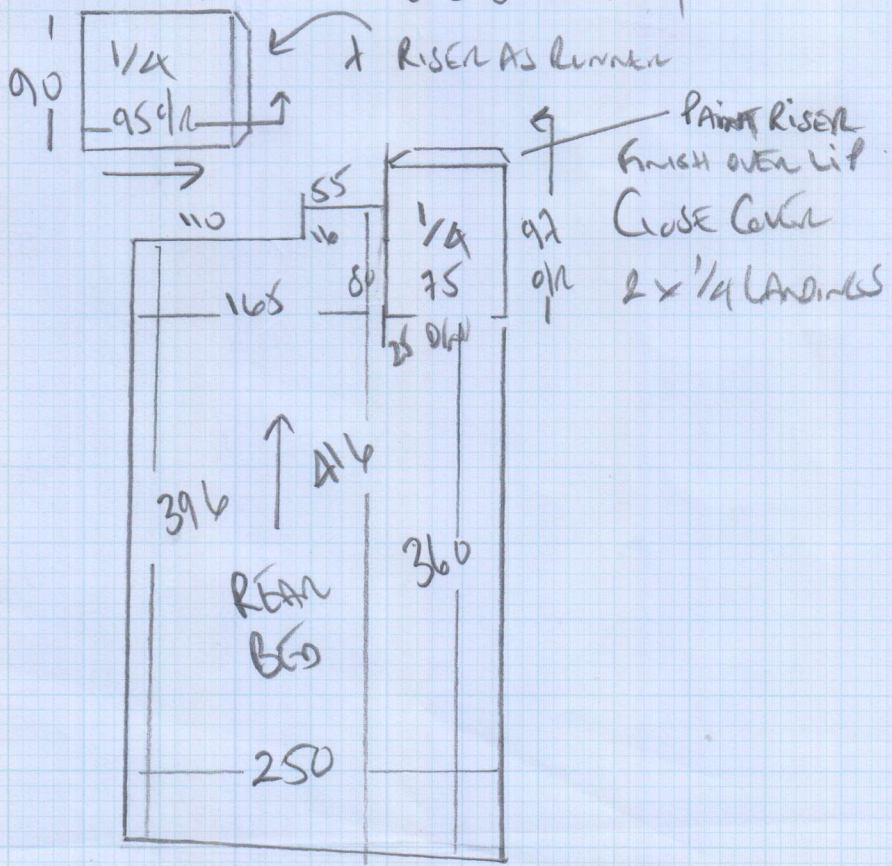 90
1/4
95 O/R
1 RISER AS RUNNER
PAINT RISER
FINISH OVER LIP
CLOSE COVER
2 x 1/4 LANDINGS
55
110
16
1/4
75
92
O/R
165
80
396
416
360
REAR
BED
250